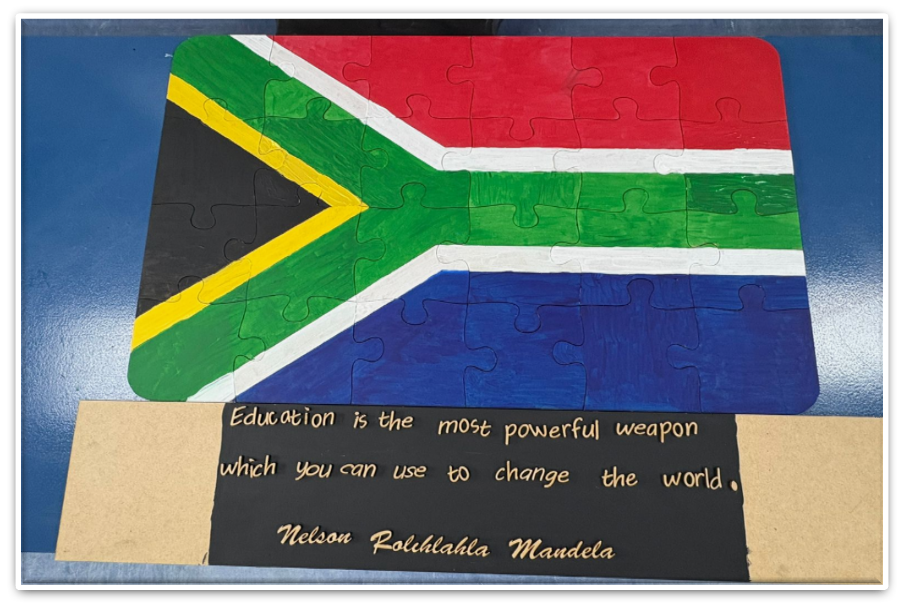 Education is the most powerful weapon
which you can use to change the world.
Nelson Rolihlahla Mandela